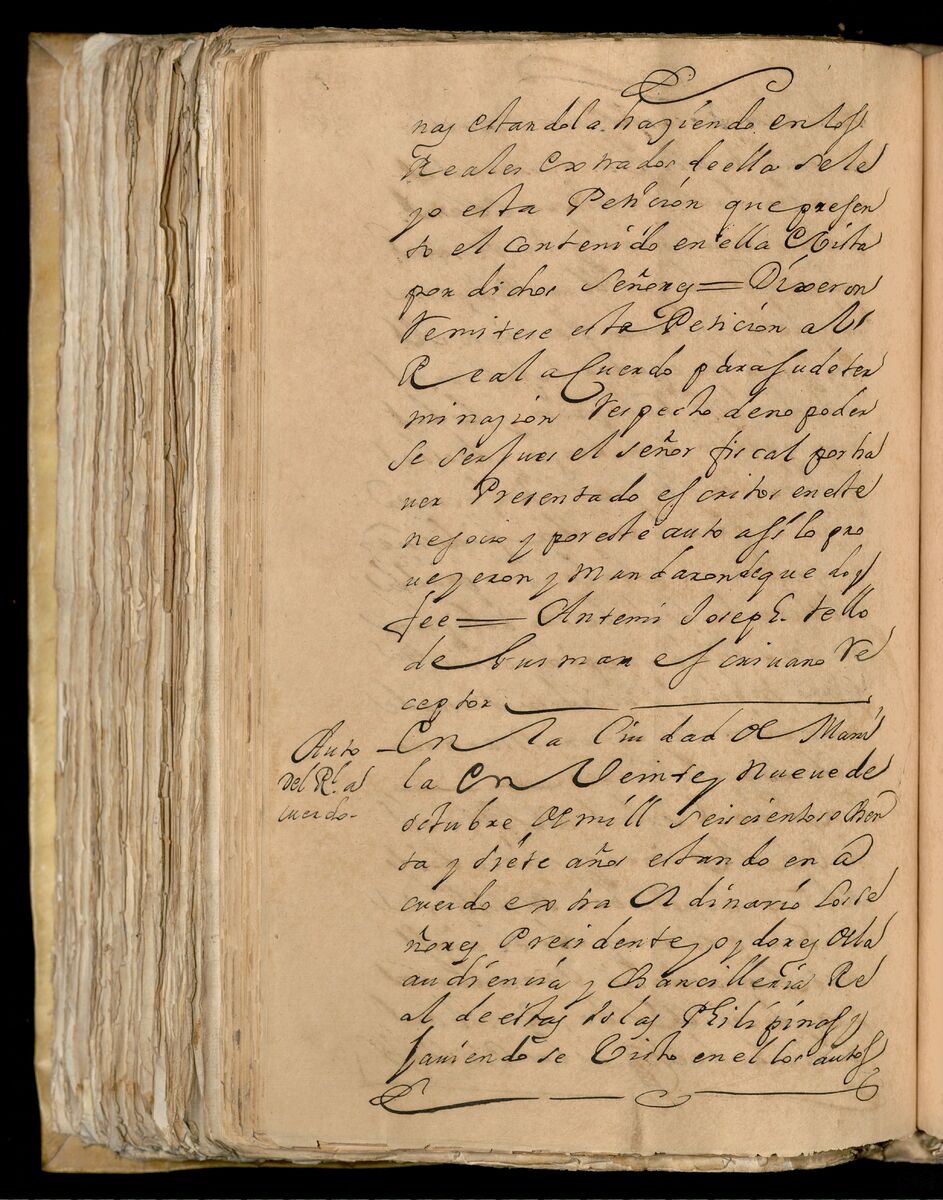 nas estandola haziendo en los
Reales extrados de ella se le
yo esta Petición que presen
to el contenido en ella Vista
por dichos Señores = Dixeron
Remitese esta Petición al
Real acuerdo para su deter
minazion Respecto de no poder
se ser Jues el señor fiscal por ha
uer Presentado escritos en este
negocio y por este auto assi lo pro
ueyeron y mandaron de que doy
fee = Antemi Joseph tello
de Gusman escriuano Re
ceptor
Auto
del Rl. a
cuerdo-
En la Ciudad de Mani
la En Veinte y Nueue de
octubre de mill seiscientos ochen
ta y siete años estando en a
cuerdo extra Ordinario los se
ñores Presidente y oydores de la
audiencia y Chancilleria Re
al de estas Islas Philipinas y
hauiendose Visto en el los autos